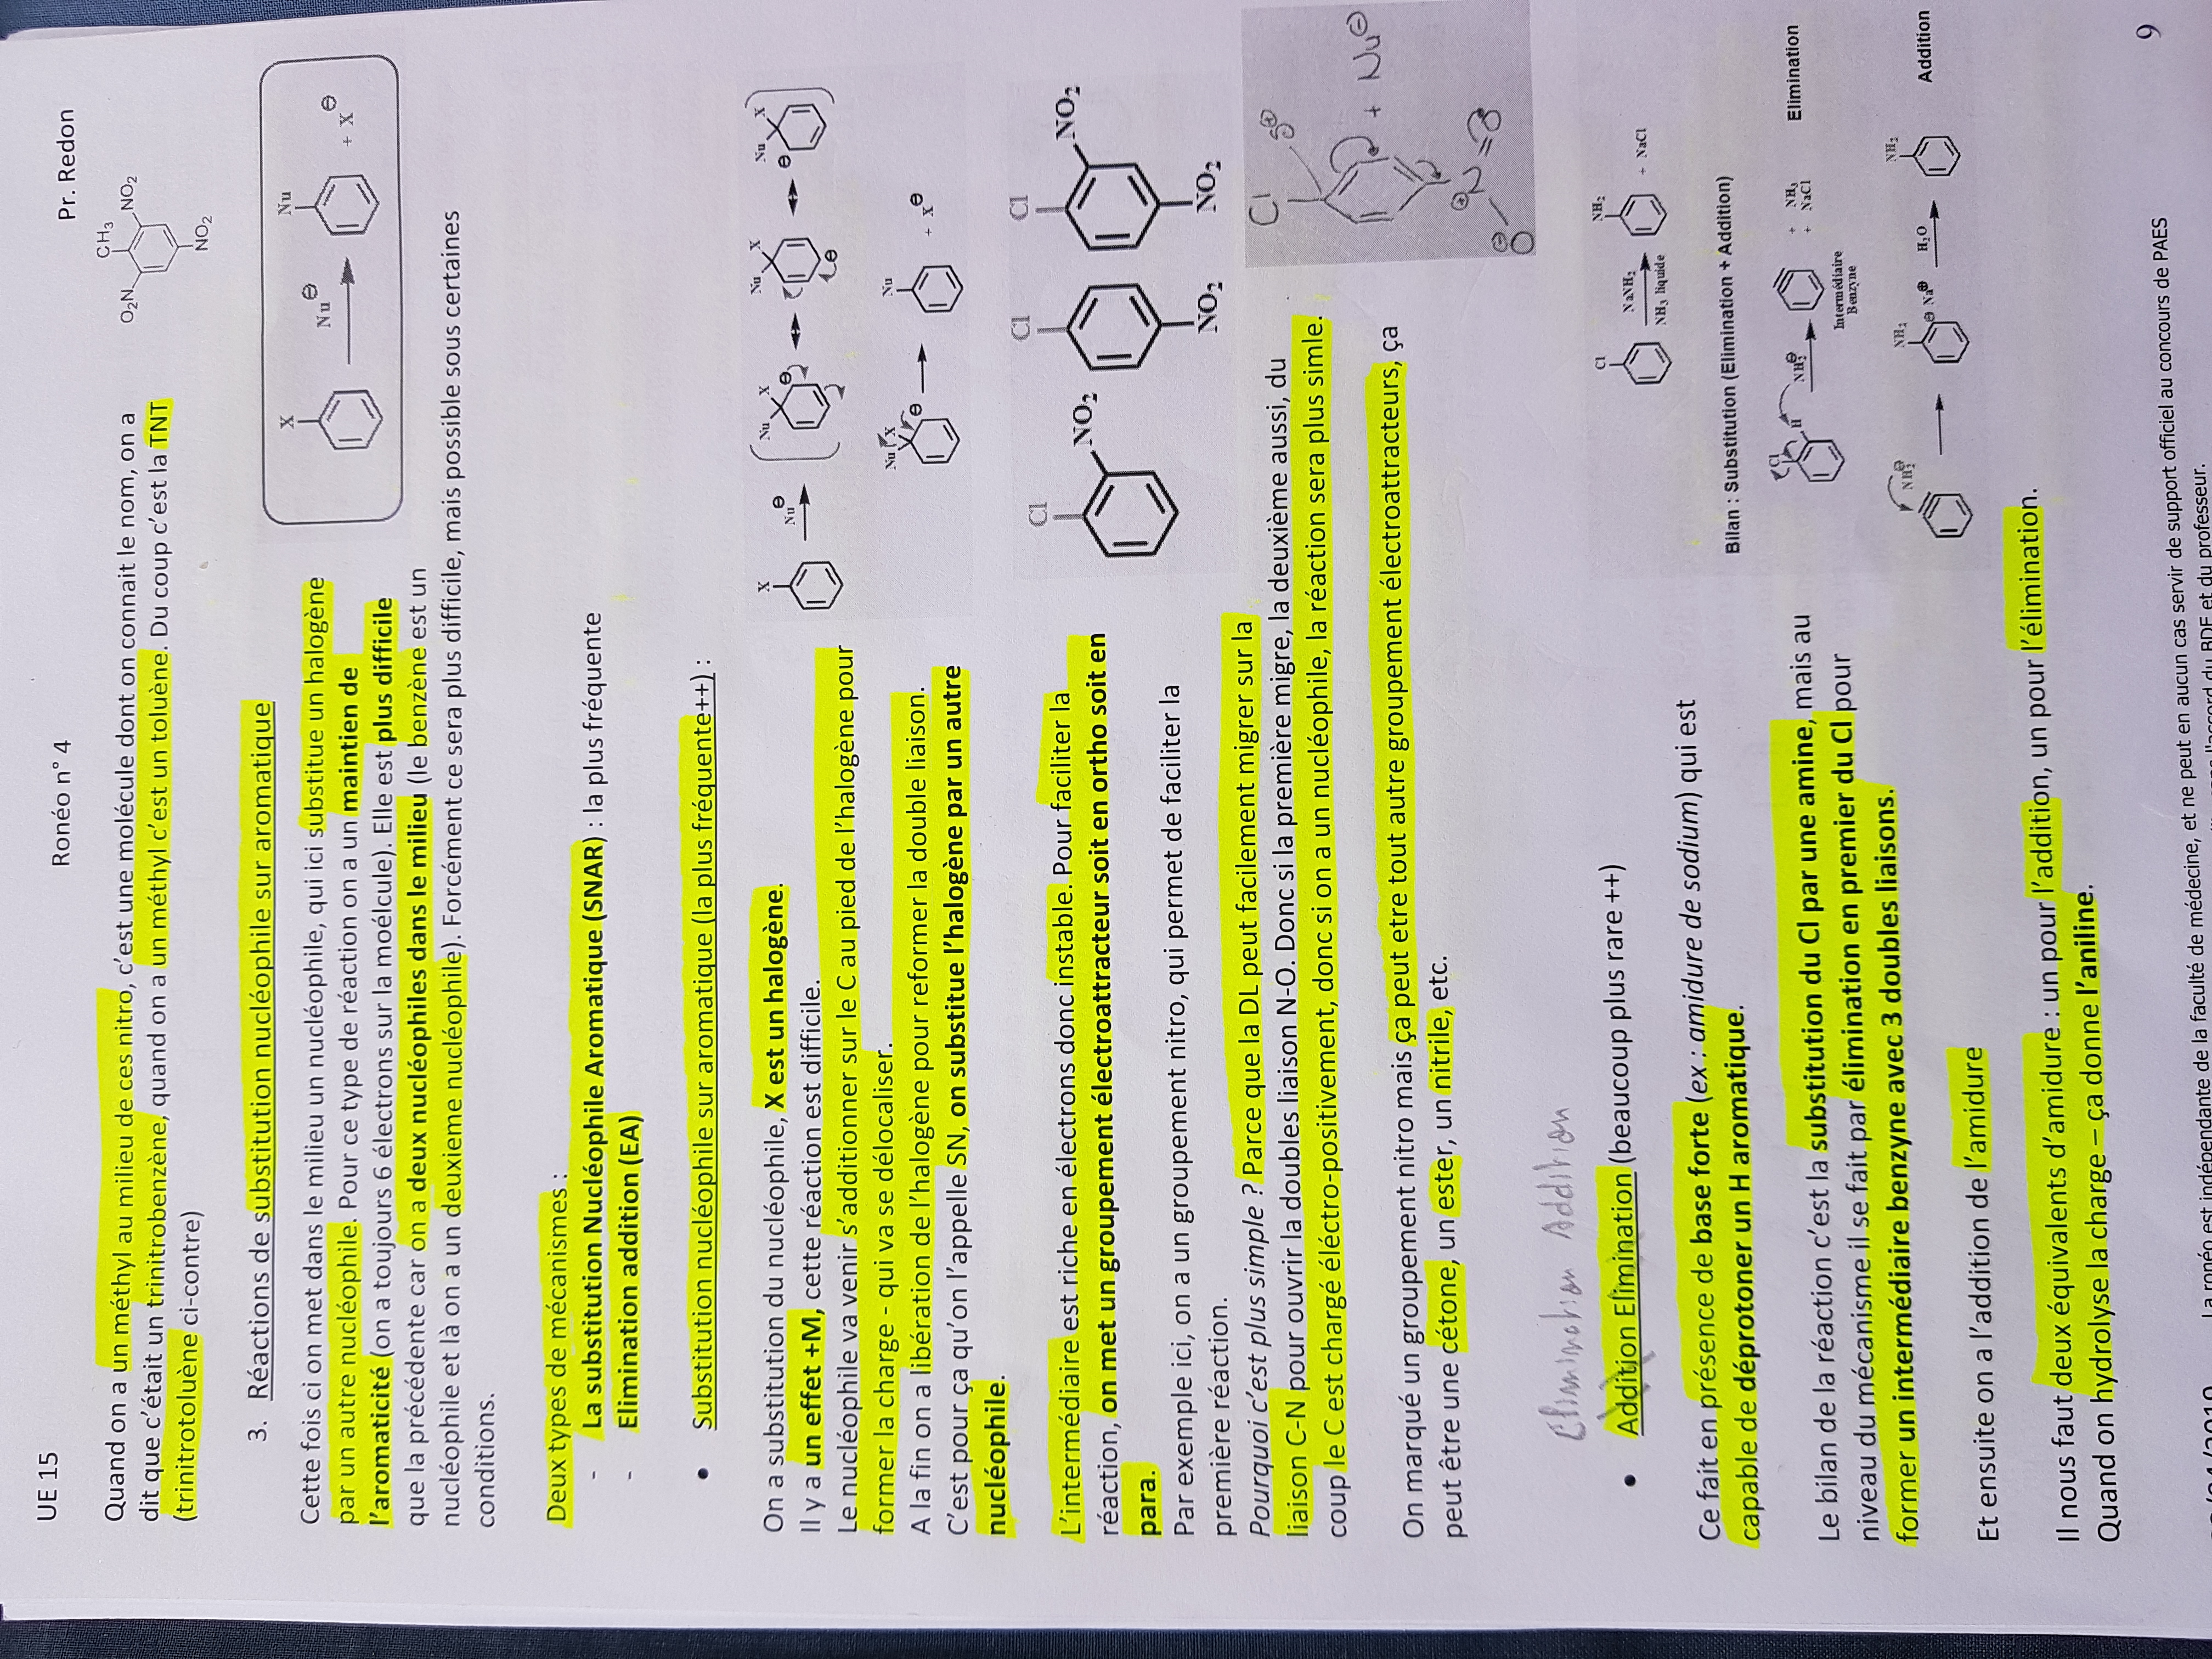 UE 15 Ronéo n° 4 Pr. Redon
Quand on a un méthyl au milieu de ces nitro, c'est une molécule dont on connait le nom, on a
dit que c'était un trinitrobenzène, quand on a un méthyl c'est un toluène. Du coup c'est la TNT
(trinitrotoluène ci-contre)
CH3
O2N
NO2
NO2
3. Réactions de substitution nucléophile sur aromatique
Cette fois ci on met dans le milieu un nucléophile, qui ici substitue un halogène
par un autre nucléophile. Pour ce type de réaction on a un maintien de
l'aromaticité (on a toujours 6 électrons sur la moélcule). Elle est plus difficile
que la précédente car on a deux nucléophiles dans le milieu (le benzène est un
nucléophile et là on a un deuxieme nucléophile). Forcément ce sera plus difficile, mais possible sous certaines
conditions.
X
Nu⊖
Nu
+ X⊖
Deux types de mécanismes :
- La substitution Nucléophile Aromatique (SNAR) : la plus fréquente
- Elimination addition (EA)
• Substitution nucléophile sur aromatique (la plus fréquente++) :
On a substitution du nucléophile, X est un halogène.
Il y a un effet +M, cette réaction est difficile.
Le nucléophile va venir s'additionner sur le C au pied de l'halogène pour
former la charge - qui va se délocaliser.
A la fin on a libération de l'halogène pour reformer la double liaison.
C'est pour ça qu'on l'appelle SN, on substitue l'halogène par un autre
nucléophile.
X
Nu⊖
Nu X
⊖
Nu X
⊖
Nu X
⊖
Nu X
⊖
Nu
+ X⊖
L'intermédiaire est riche en électrons donc instable. Pour faciliter la
réaction, on met un groupement électroattracteur soit en ortho soit en
para.
Par exemple ici, on a un groupement nitro, qui permet de faciliter la
première réaction.
Cl
NO2
Cl
NO2
Cl
NO2
NO2
Pourquoi c'est plus simple ? Parce que la DL peut facilement migrer sur la
liaison C-N pour ouvrir la doubles liaison N-O. Donc si la première migre, la deuxième aussi, du
coup le C est chargé éléctro-positivement, donc si on a un nucléophile, la réaction sera plus simle.
Cl
δ⊕
+ Nu⊖
⊕
N
=O
⊖
O
On marqué un groupement nitro mais ça peut etre tout autre groupement électroattracteurs, ça
peut être une cétone, un ester, un nitrile, etc.
Elimination Addition
• Addition Elimination (beaucoup plus rare ++)
Ce fait en présence de base forte (ex : amidure de sodium) qui est
capable de déprotoner un H aromatique.
Le bilan de la réaction c'est la substitution du Cl par une amine, mais au
niveau du mécanisme il se fait par élimination en premier du Cl pour
former un intermédiaire benzyne avec 3 doubles liaisons.
Et ensuite on a l'addition de l'amidure
Il nous faut deux équivalents d'amidure : un pour l'addition, un pour l'élimination.
Quand on hydrolyse la charge – ça donne l'aniline.
Cl
NaNH2
NH3 liquide
NH2
+ NaCl
Bilan : Substitution (Elimination + Addition)
Cl
H
NH2⊖
Intermédiaire
Benzyne
+ NH3
+ NaCl
Elimination
NH2⊖
NH2
⊖ Na⊕
H2O
NH2
Addition
9
La ronéo est indépendante de la faculté de médecine, et ne peut en aucun cas servir de support officiel au concours de PAES
l'accord du BDE et du professeur.